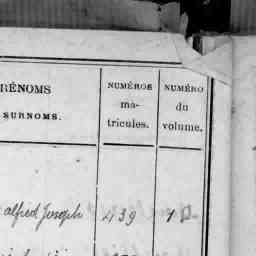 RÉNOMS
SURNOMS.
NUMÉROS
ma-
tricules.
NUMÉRO
du
volume.
alfred Joseph 439